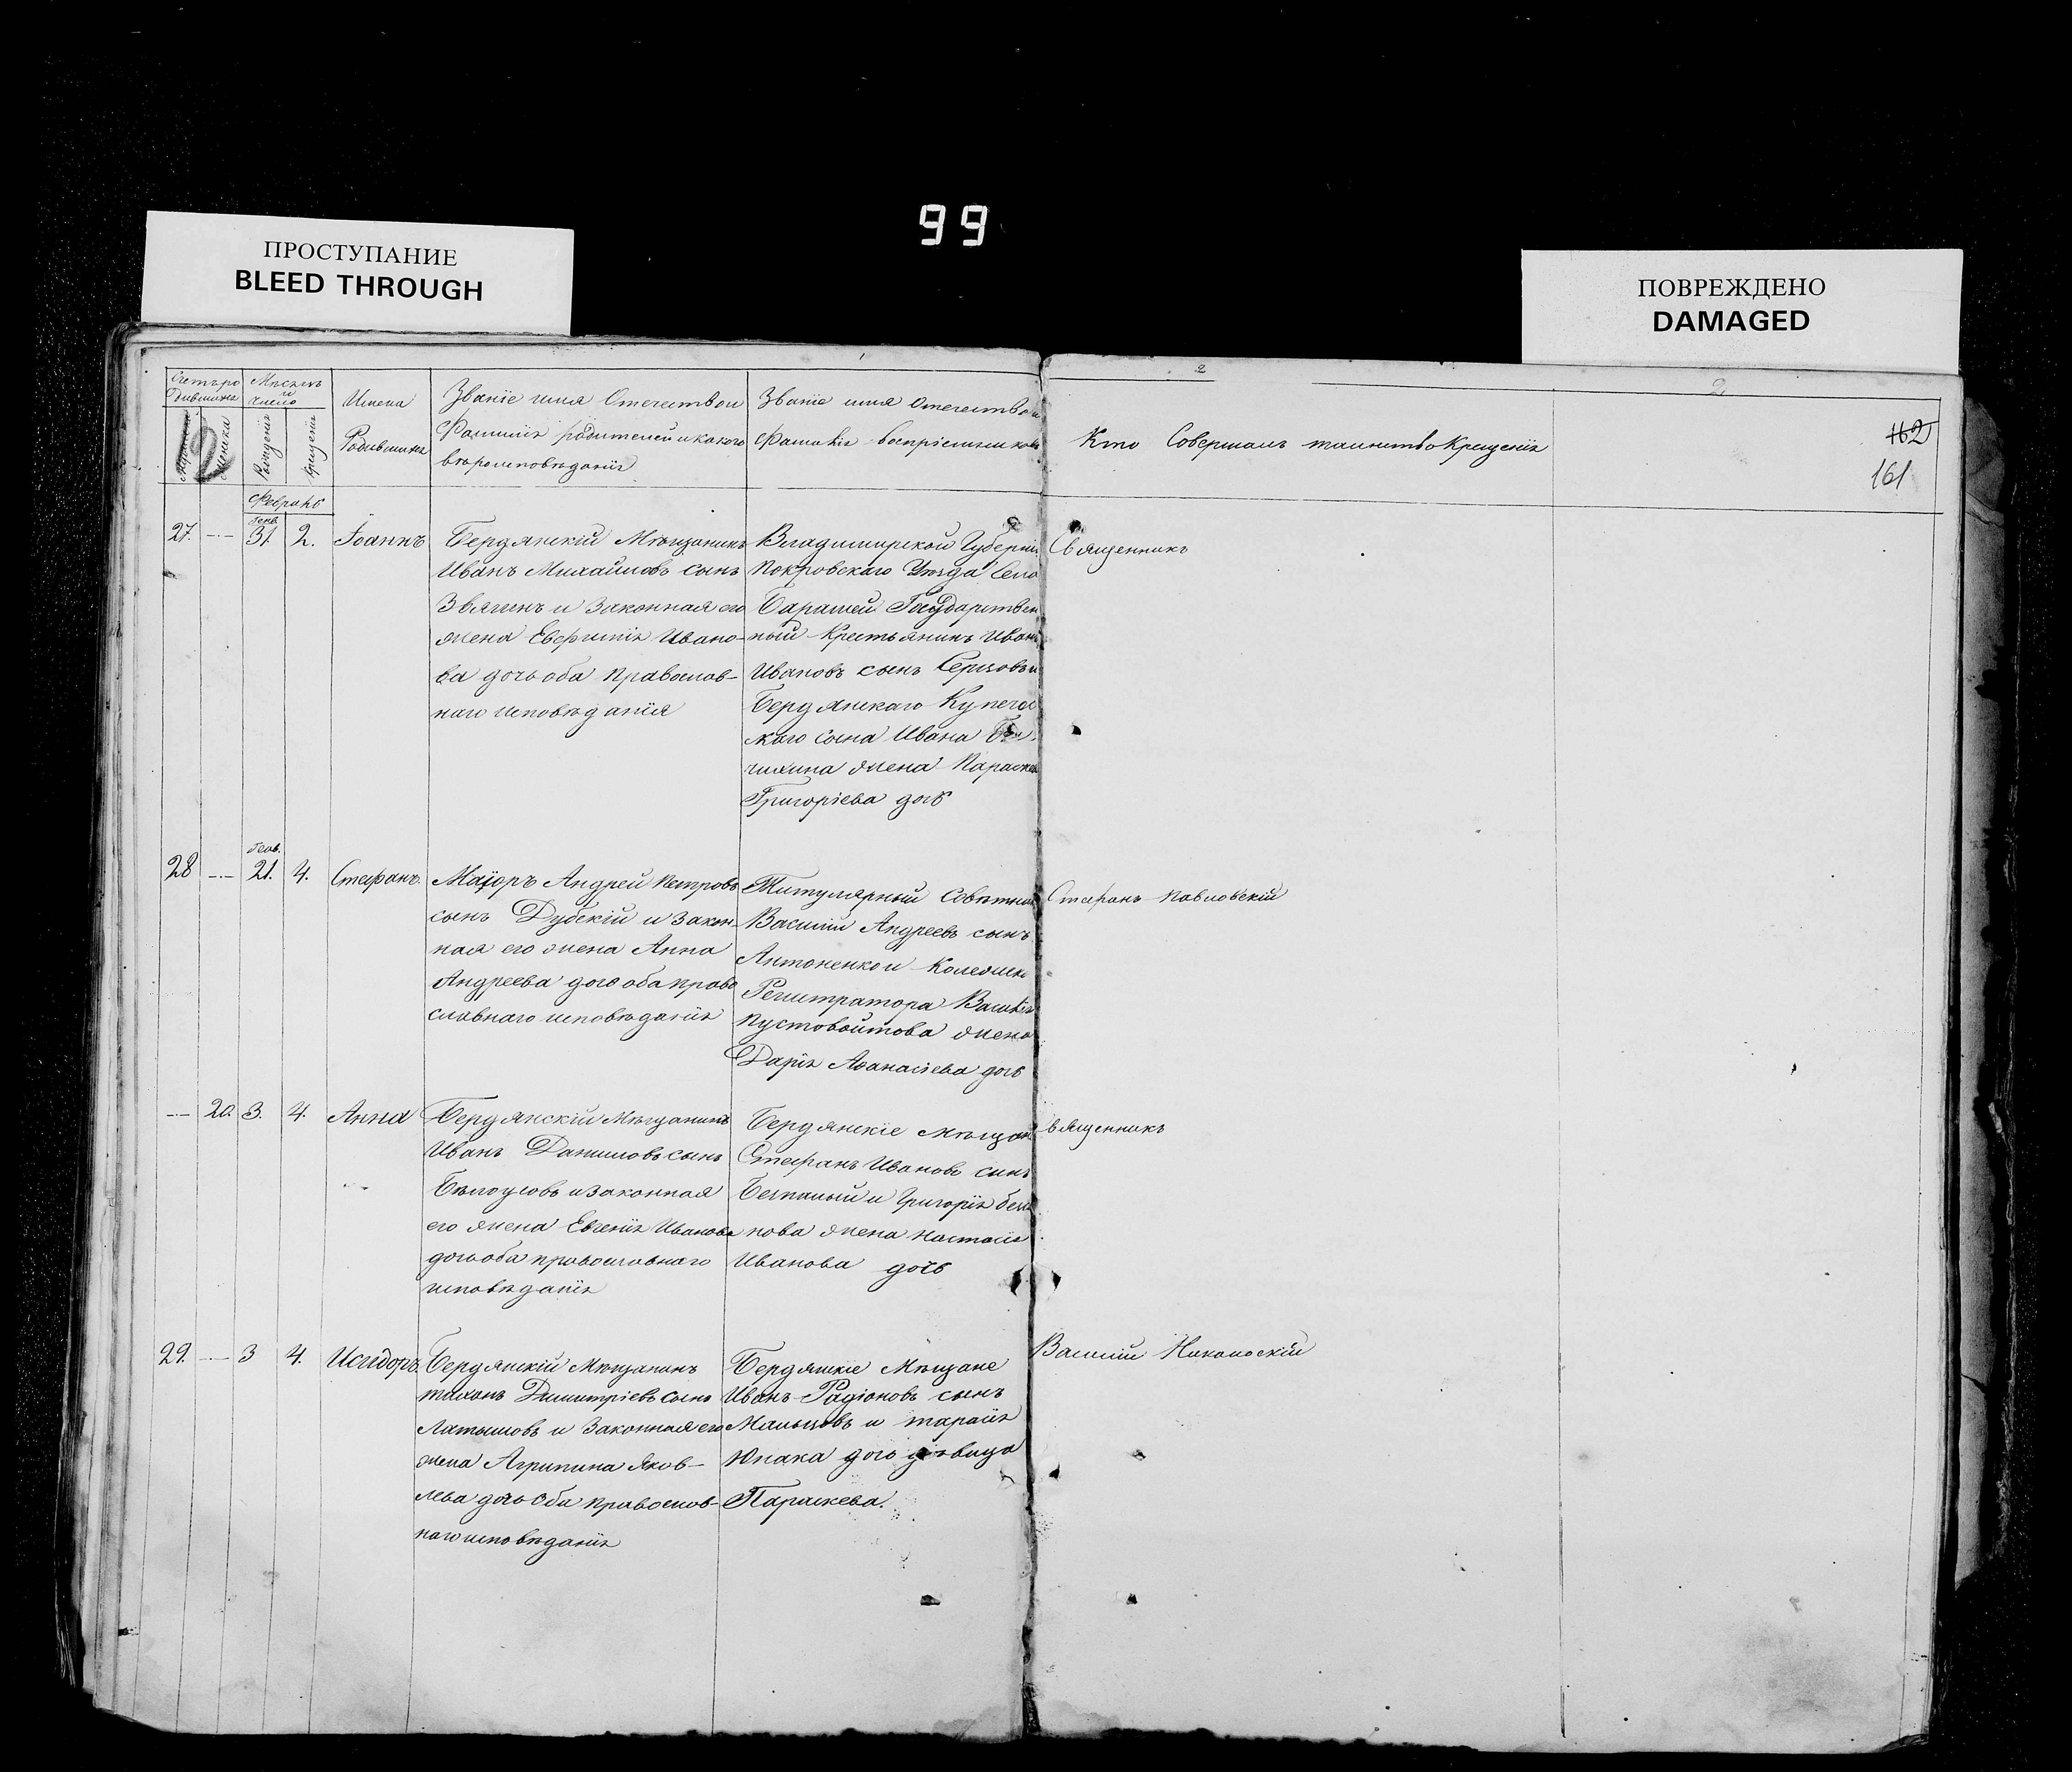 99
ПРОСТУПАНИЕ
BLEED THROUGH
ПОВРЕЖДЕНО
DAMAGED
Счетъ ро
дившихся
Мѣсяцъ
и
число
Рожденія
Крещенія
Имена
Родившихся
Званіе имя Отечество и
Фамилія родителей и какого
вѣроисповѣданія
Званіе имя Отечество и
Фамилія воспріемников
2
Кто Совершалъ таинство Крещенія
2
162
161
Февраль
27. 31. 2. Іоаннъ
Бердянскій Мѣщанинъ
Иванъ Михайловъ сынъ
Звягинъ и Законная его
жена Евфимія Ивано-
ва дочь оба Православ-
наго исповѣданія
Владимирской Губерніи
Покровскаго Уѣзда Села
Государствен
ный Крестьянинъ Иванъ
Ивановъ сынъ
Бердянскаго Купечес
каго сына Ивана
жена
Григоріева дочь
Священникъ
28 21. 4. Стефанъ.
Маіоръ Андрей Петровъ
сынъ Дубскій и Закон-
ная его жена Анна
Андреева дочь оба Право
славнаго исповѣданія
Титулярный Совѣтни
Василій Андреевъ сынъ
Антоненко и Колежск
Регистратора Василія
Пустовойтова жена
Дарія Аѳанасіева дочь
Стефанъ Павловскій
20. 3. 4. Анна
Бердянскій Мѣщанинъ
Иванъ Даниловъ сынъ
Бѣлоусовъ и законная
его жена Евгенія Иванова
дочь оба православнаго
исповѣданія
Бердянскіе Мѣщан
Стефанъ Ивановъ сынъ
и Григорія
нова жена
Иванова дочь
вященникъ
29. 3 4. Исидоръ.
Бердянскій Мѣщанинъ
Тихонъ Димитріевъ сынъ
Латышовъ и Законная его
жена Агрипина Яков-
лева дочь Оба Православ-
наго исповѣданія
Бердянскіе Мѣщане
Иванъ Радіоновъ сынъ
Мальцовъ и
дочь дѣвица
Параскева.
Василій